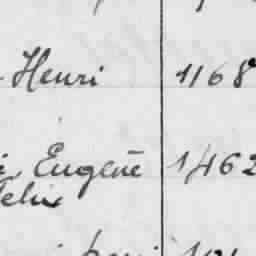 Henri 1168
Eugène 1462
Felix